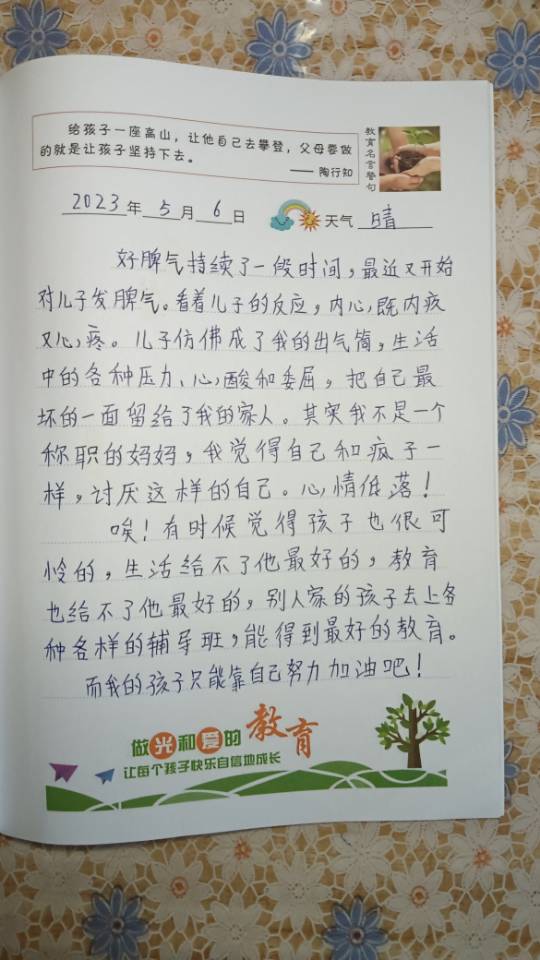 给孩子一座高山，让他自己去攀登，父母要做
的就是让孩子坚持下去。
—— 陶行知
教育名言警句
2023年5月6日 天气 晴
好脾气持续了一段时间，最近又开始
对儿子发脾气。看着儿子的反应，内心既内疚
又心疼。儿子仿佛成了我的出气筒，生活
中的各种压力、心酸和委屈，把自己最
坏的一面留给了我的家人。其实我不是一个
称职的妈妈，我觉得自己和疯子一
样，讨厌这样的自己。心情低落！
唉！有时候觉得孩子也很可
怜的，生活给不了他最好的，教育
也给不了他最好的，别人家的孩子去上各
种各样的辅导班，能得到最好的教育。
而我的孩子只能靠自己努力加油吧！
做光和爱的教育
让每个孩子快乐自信地成长